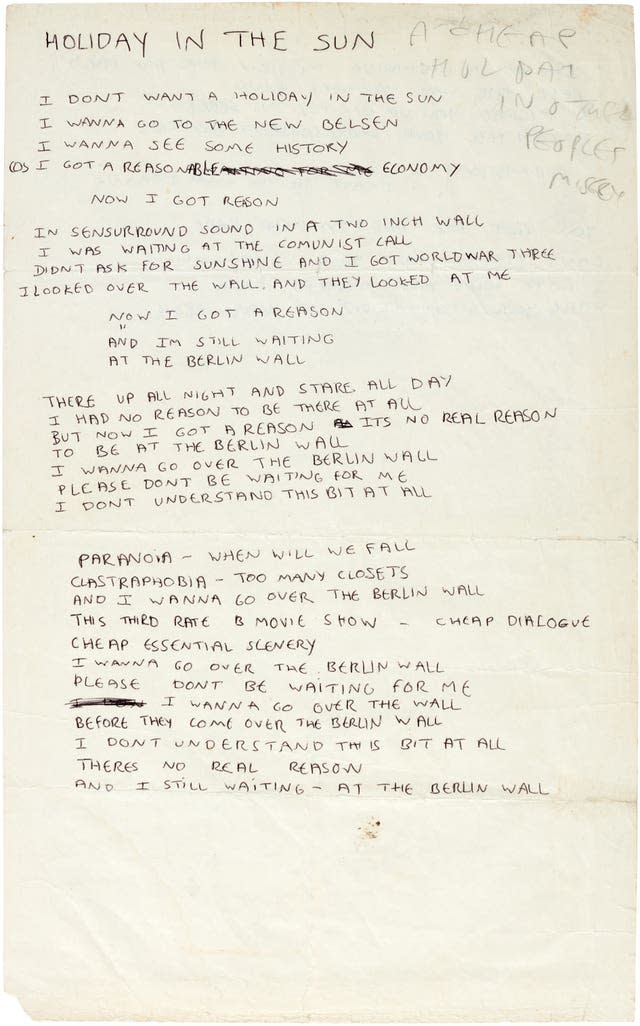 HOLIDAY IN THE SUN
A CHEAP
HOLIDAY
IN OTHER
PEOPLES
MISERY
I DONT WANT A HOLIDAY IN THE SUN
I WANNA GO TO THE NEW BELSEN
I WANNA SEE SOME HISTORY
COS I GOT A REASONABLE ECONOMY
NOW I GOT REASON
IN SENSURROUND SOUND IN A TWO INCH WALL
I WAS WAITING AT THE COMUNIST CALL
DIDNT ASK FOR SUNSHINE AND I GOT WORLDWAR THREE
I LOOKED OVER THE WALL AND THEY LOOKED AT ME
NOW I GOT A REASON
AND IM STILL WAITING
AT THE BERLIN WALL
THERE UP ALL NIGHT AND STARE ALL DAY
I HAD NO REASON TO BE THERE AT ALL
BUT NOW I GOT A REASON ITS NO REAL REASON
TO BE AT THE BERLIN WALL
I WANNA GO OVER THE BERLIN WALL
PLEASE DONT BE WAITING FOR ME
I DONT UNDERSTAND THIS BIT AT ALL
PARANOIA - WHEN WILL WE FALL
CLASTRAPHOBIA - TOO MANY CLOSETS
AND I WANNA GO OVER THE BERLIN WALL
THIS THIRD RATE B MOVIE SHOW - CHEAP DIALOGUE
CHEAP ESSENTIAL SCENERY
I WANNA GO OVER THE BERLIN WALL
PLEASE DONT BE WAITING FOR ME
I WANNA GO OVER THE WALL
BEFORE THEY COME OVER THE BERLIN WALL
I DONT UNDERSTAND THIS BIT AT ALL
THERES NO REAL REASON
AND I STILL WAITING - AT THE BERLIN WALL